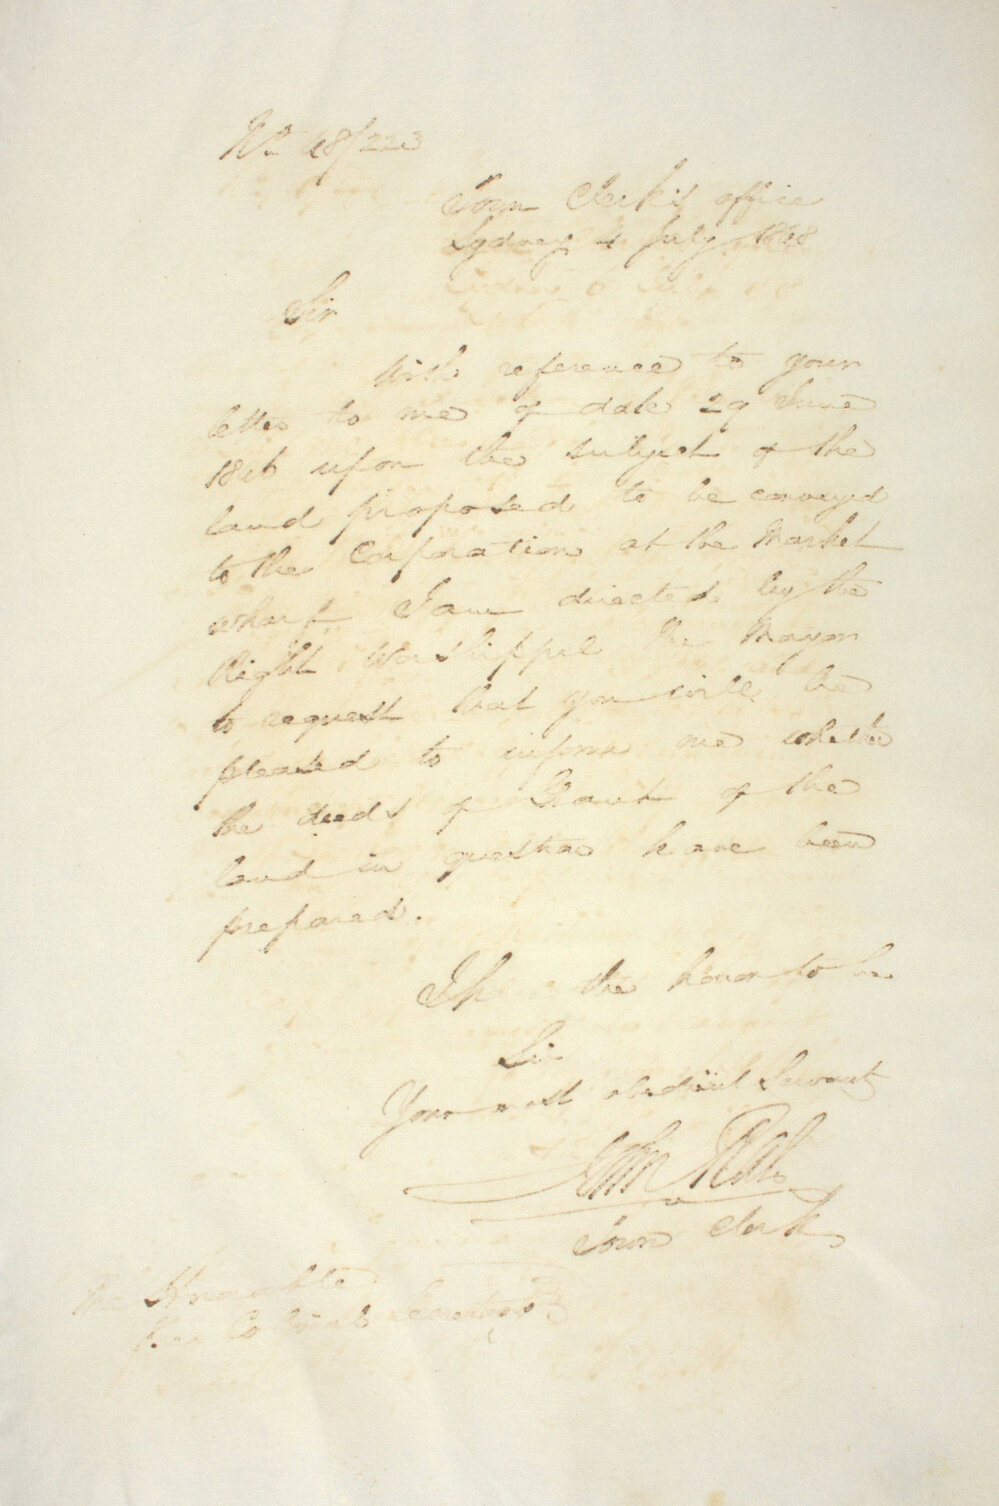 No 48/223
Town Clerk's office
Sydney 4 July 1848
Sir
With reference to your
letter to me of date 29 June
1846 upon the subject of the
land proposed to be conveyed
to the Corporation at the Market
wharf I am directed by the
Right Worshipful the Mayor
to request that you will be
pleased to inform me whether
the deeds of Grant of the
land in question have been
prepared.
I h the honor to be
Sir
Your most obedient Servant
John
Town Clerk
The Honorable
The Colonial Secretary